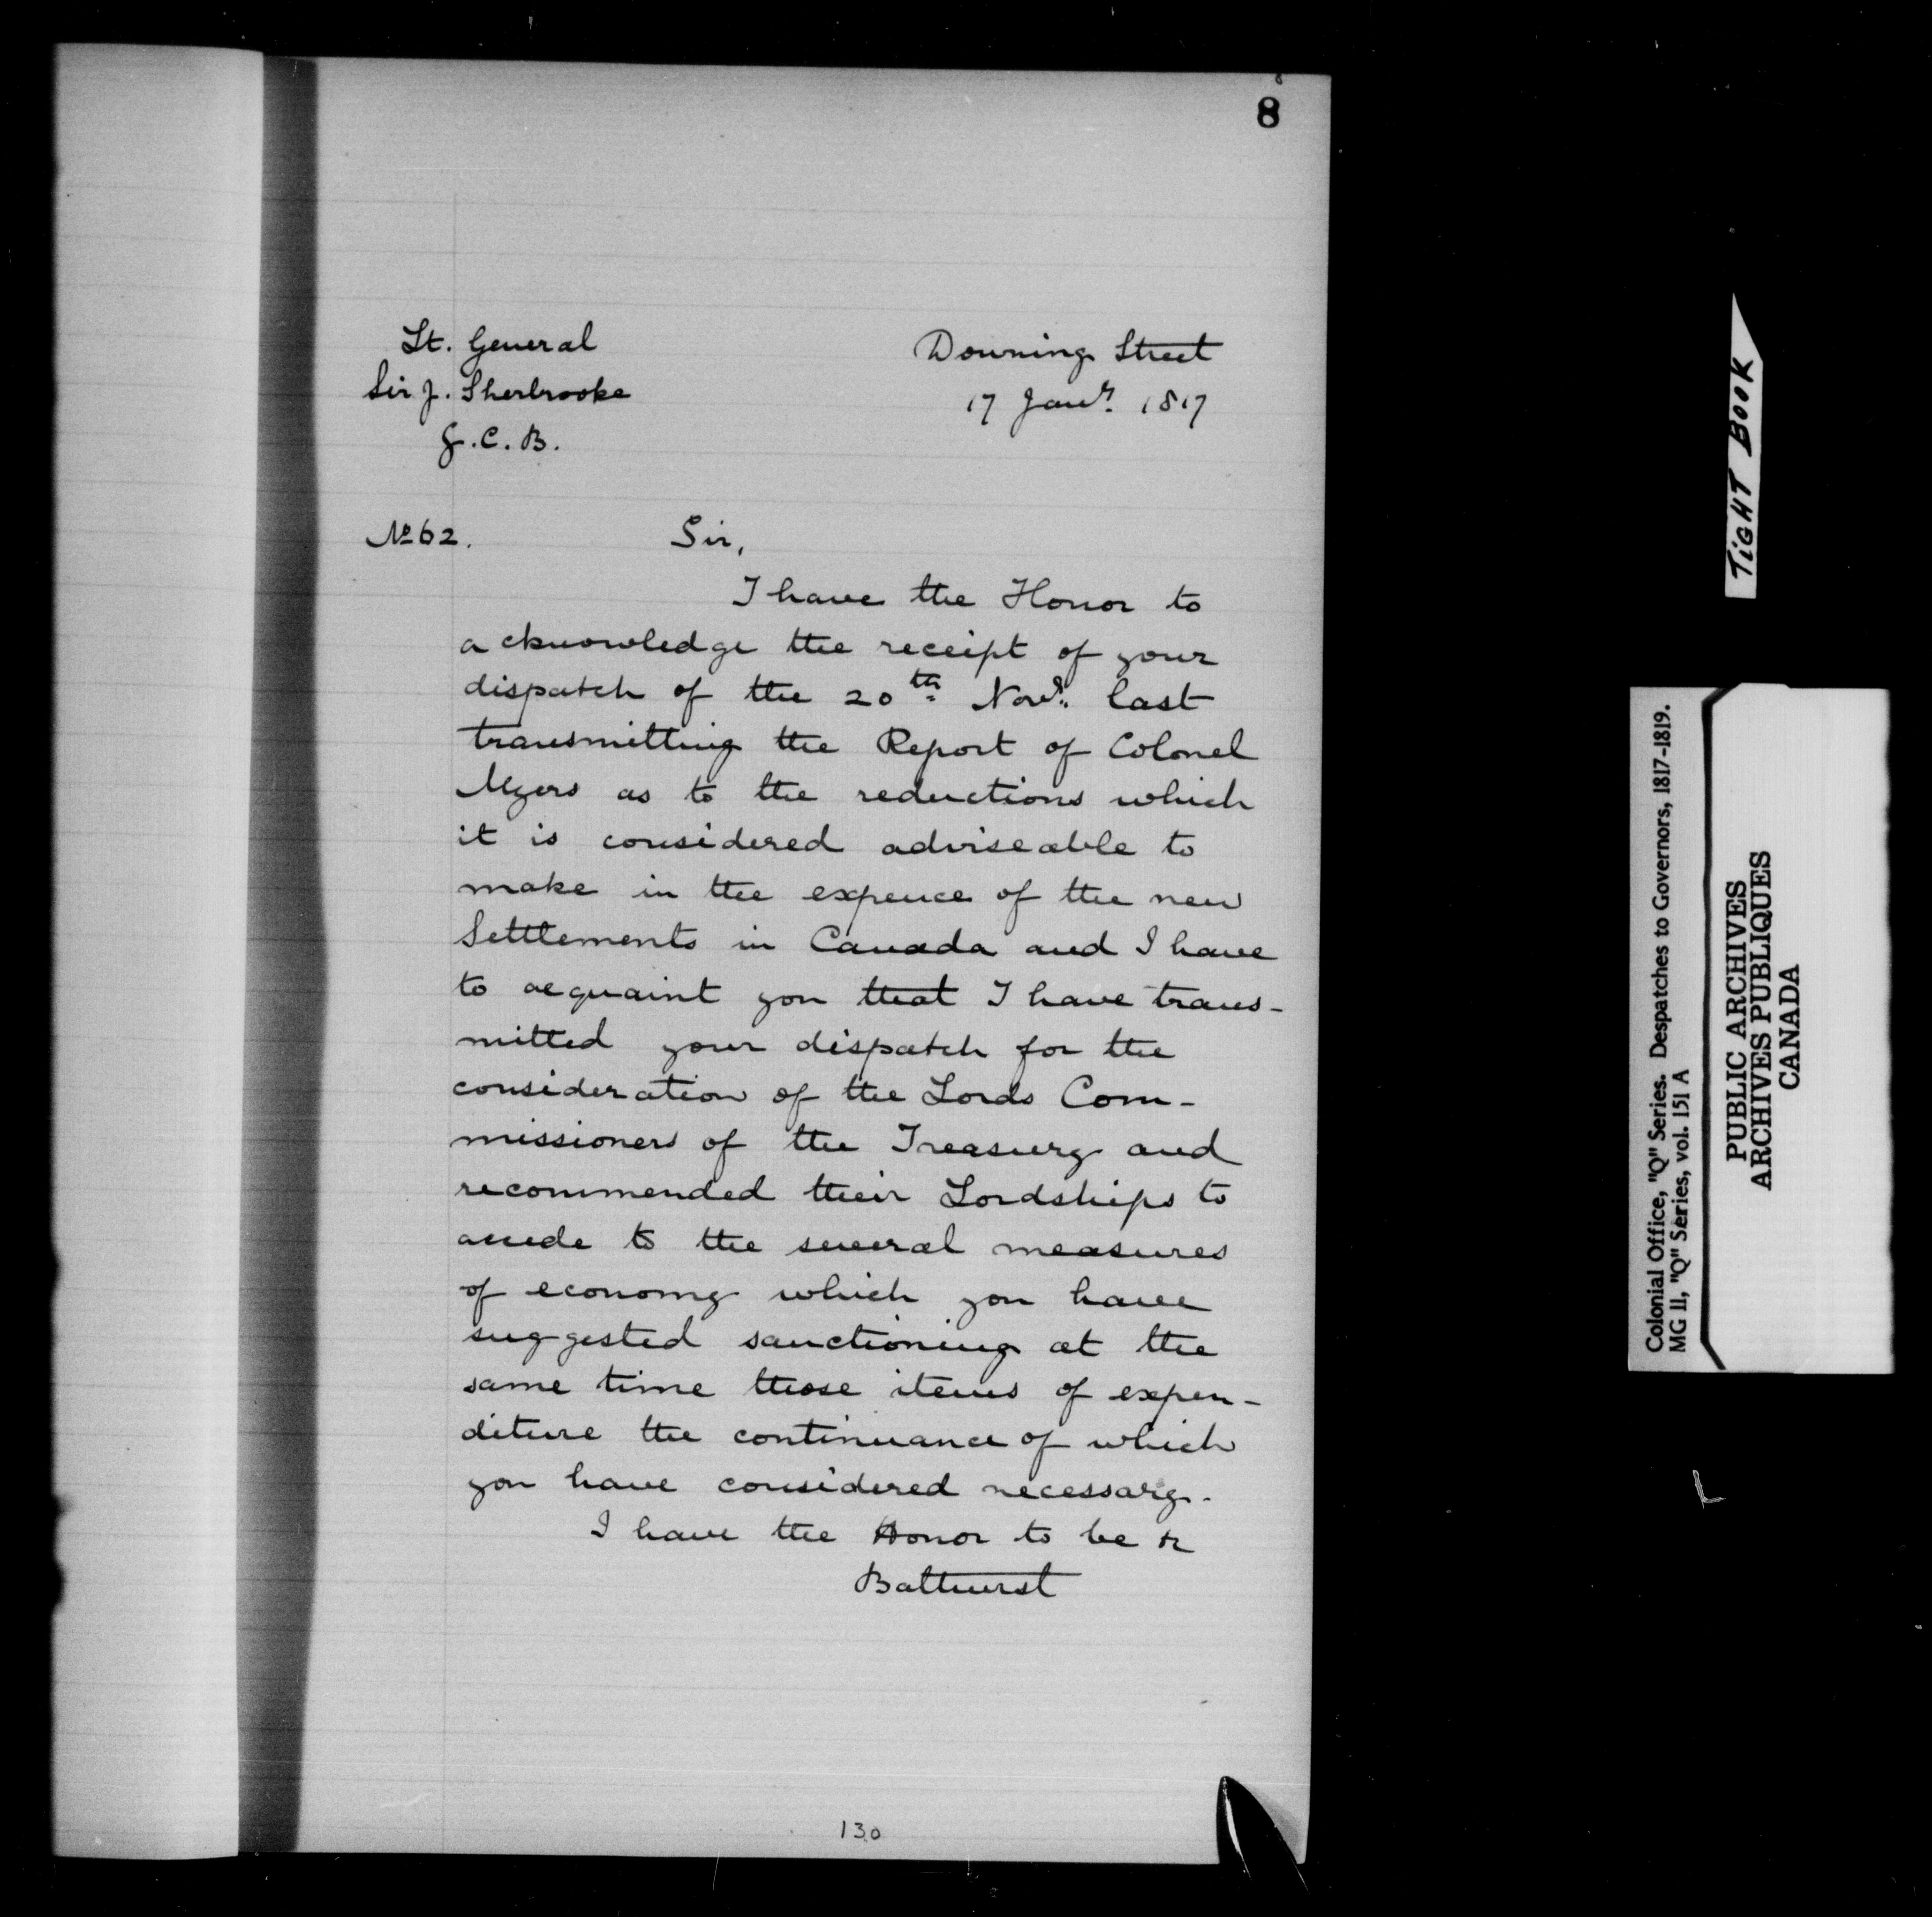 8
Lt. General
Sir J. Sherbrooke
G.C.B.
Downing Street
17 Jany. 1817
No 62.
Sir,
I have the Honor to
acknowledge the receipt of your
dispatch of the 20th Novr. last
transmitting the Report of Colonel
Myers as to the reductions which
it is considered adviseable to
make in the expence of the new
Settlements in Canada and I have
to acquaint you that I have trans-
mitted your dispatch for the
consideration of the Lords Com-
missioners of the Treasury and
recommended their Lordships to
accede to the several measures
of economy which you have
suggested sanctioning at the
same time those items of expen-
diture the continuance of which
you have considered necessary.
I have the Honor to be &
Bathurst
130
TIGHT BOOK
Colonial Office, "Q" Series. Despatches to Governors, 1817-1819.
MG 11, "Q" Series, vol. 151 A
PUBLIC ARCHIVES
ARCHIVES PUBLIQUES
CANADA